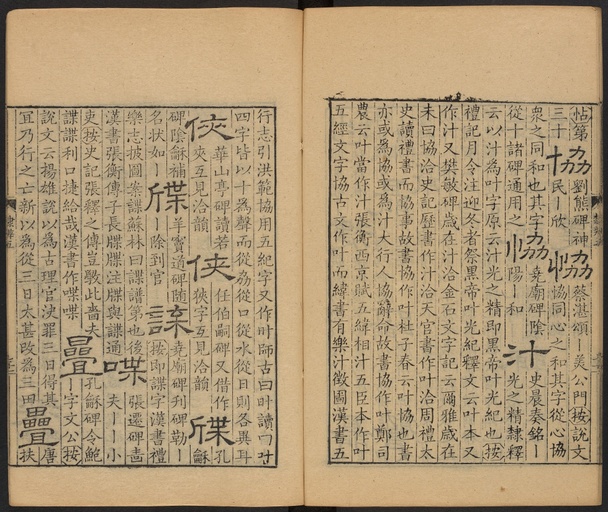 怗第 協 劉熊碑神 恊 蔡湛頌｜美公門按說文
三十 民｜欣 協同心之和其字從心協
衆之同和也其字 堯廟碑陰 史晨奏銘｜
從十諸碑通用之 陽｜和 汁 光之精隸釋
云以汁為叶字原云汁光之精即黑帝叶光紀也按
禮記月令注迎冬者祭黑帝叶光紀釋文云叶本又
作汁又樊敏碑歲在汁洽金石文字記云爾雅歲在
未曰協洽史記歷書作汁洽天官書作叶洽周禮太
史讀禮書而協事故書協作叶杜子春云叶協也書
亦或為協或為汁大行人協辭命故書協作叶鄭司
農云叶當作汁張衡西京賦五緯相汁五臣本作叶
五經文字協古文作叶而緯書有樂汁徵圖漢書五
行志引洪範協用五紀字又作旪師古曰旪讀曰叶
四字皆以十為聲而從劦從口從水從日則各異耳
俠 華山亭碑讀若 俠 任伯嗣碑又借作 牒 孔
夾互見洽韻 狹字互見洽韻 龢
碑陰龢補 牒 羊竇道碑隨 諜 堯廟碑刋碑勒｜
名狀如｜ ｜除到官 按即諜字漢書禮
樂志披圖案諜蘇林曰諜譜第也後 喋 張遷碑嗇
漢書張衡傳子長牒牒注牒與諜通 夫｜｜小
吏按史記張釋之傳豈斅此嗇夫 疊 孔龢碑令鮑
諜諜利口捷給哉漢書作喋喋 ｜字文公按
說文云揚雄說以為古理官決罪三日得其 疊 唐
宜乃行之亡新以為從三日太甚改為三田 扶